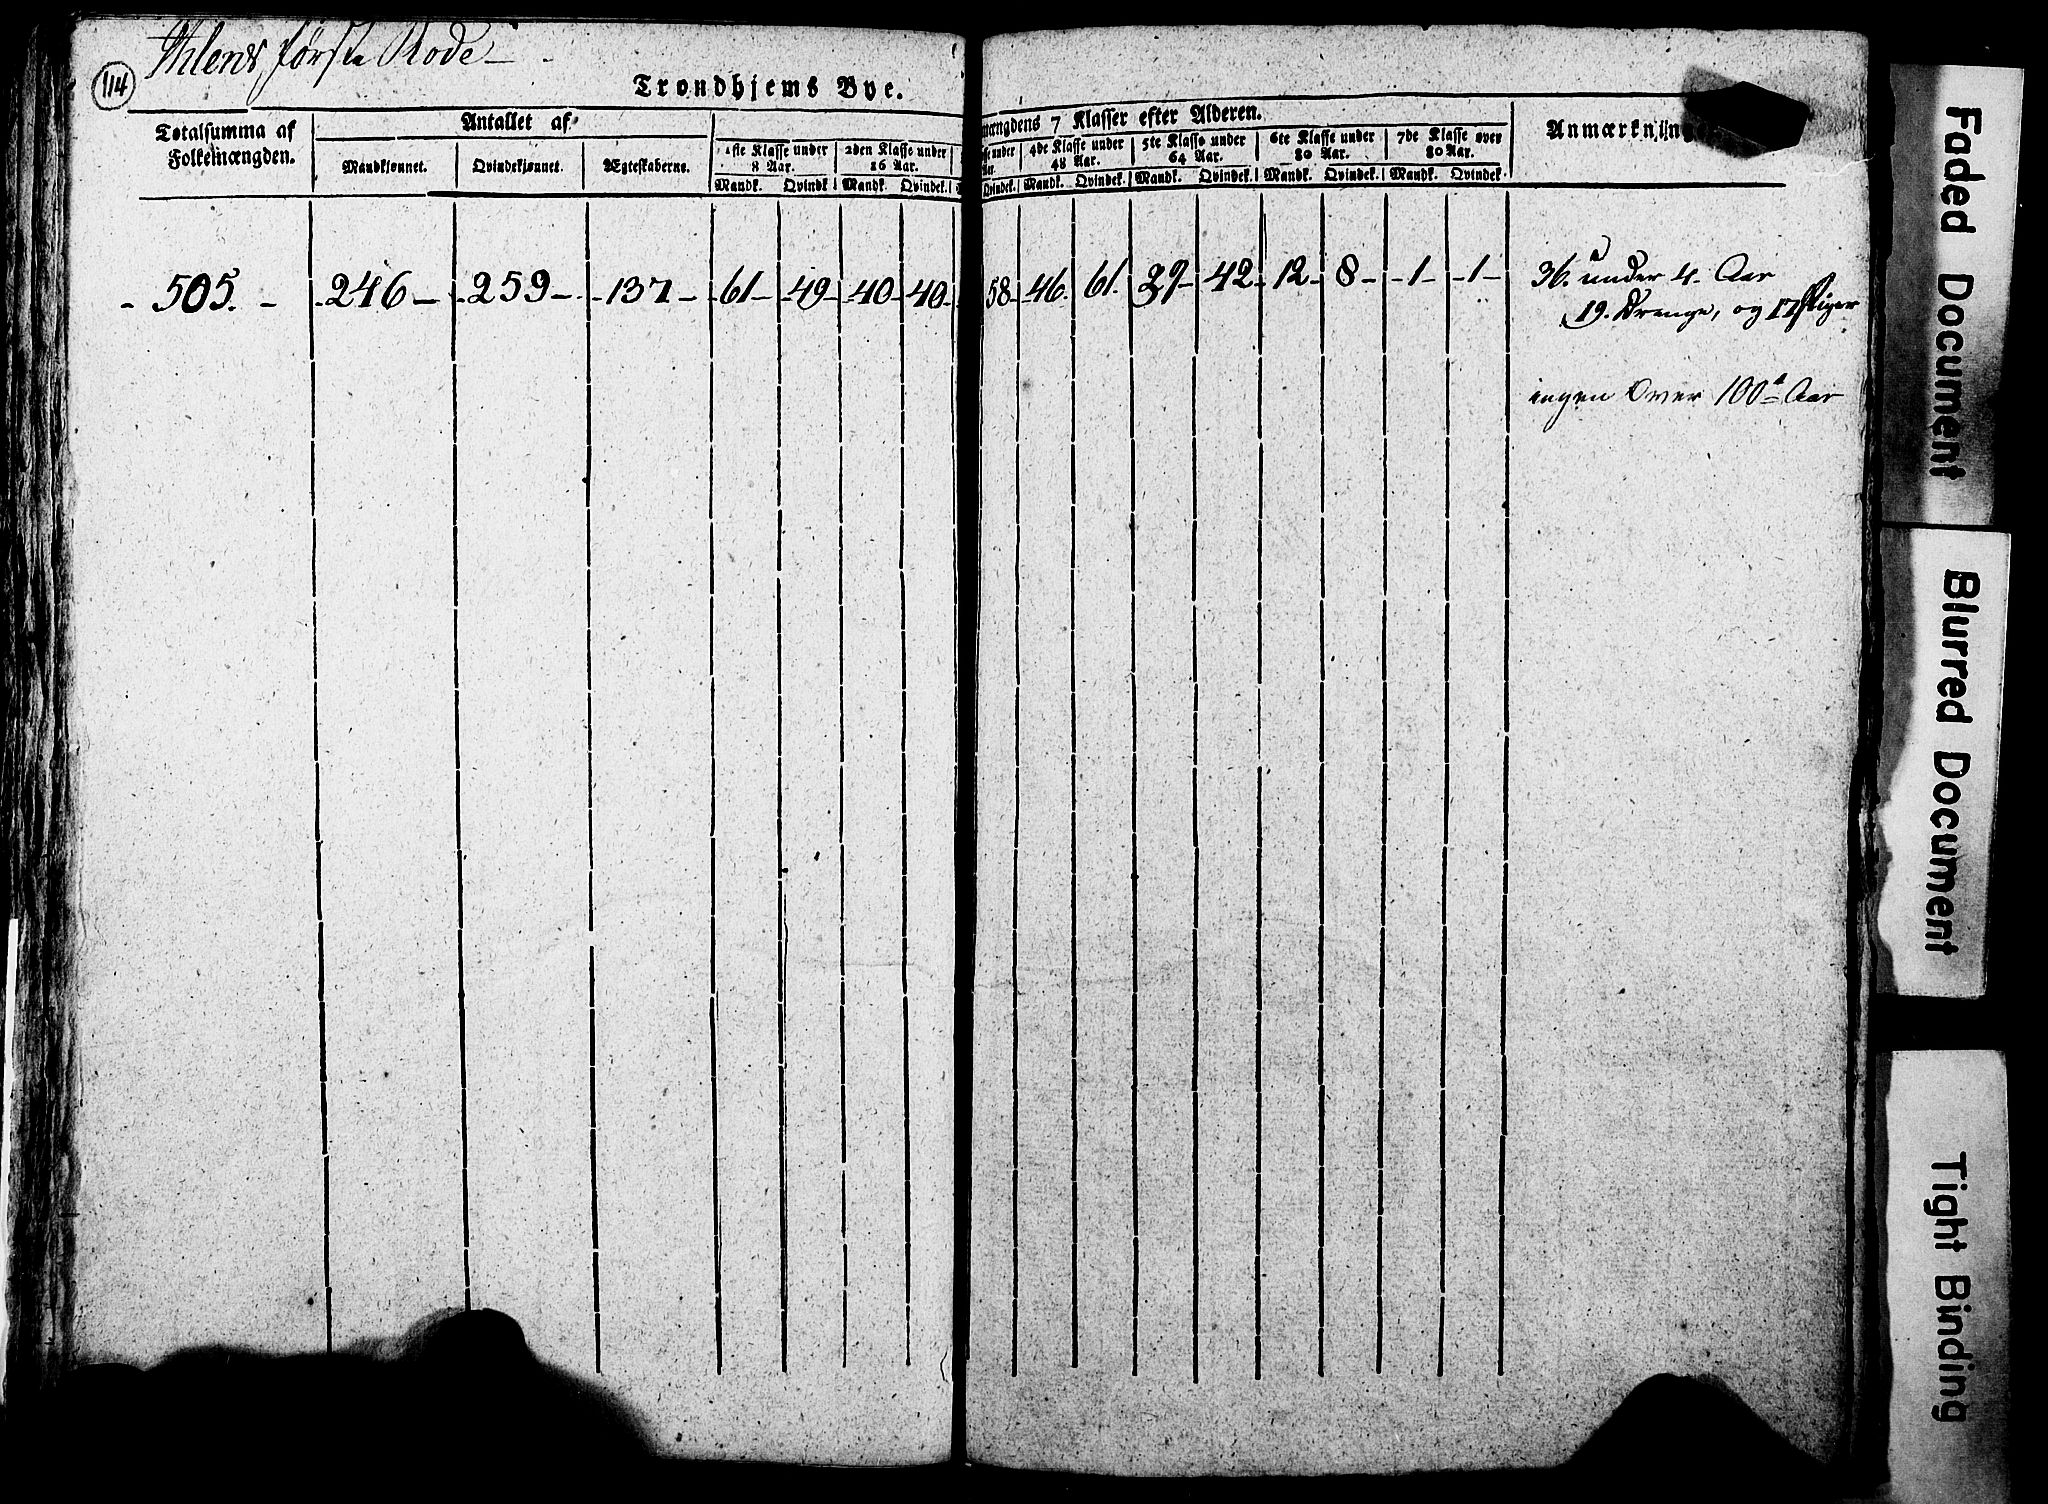 Ihlens første Rode
114
Trondhjems Bye.
Totalsumma af
Folkemængden.
Antallet af
Mandkjønnet. Qvindekjønnet. Ægteskaberne.
1ste Klasse under
8 Aar.
2den Klasse under
16 Aar.
Mandk. Qvindek. Mandk. Qvindek.
- 505. - - 246 - - 259 - - 137 - - 61 - - 49 - - 40 - - 40 -
mængdens 7 Klasser efter Alderen.
sse under
Aar.
4de Klasse under
48 Aar.
5te Klasse under
64 Aar.
6te Klasse under
80 Aar.
7de Klasse over
80 Aar.
Qvindek. Mandk. Qvindek. Mandk. Qvindek. Mandk. Qvindek. Mandk. Qvindek.
Anmærkning
58 - 46. 61. - 42 - 12 - 8 - - 1 - - 1 -
36. under 4. Aar
19. Drenge, og 17 Piger
ingen Over 100 Aar
Faded Document
Blurred Document
Tight Binding